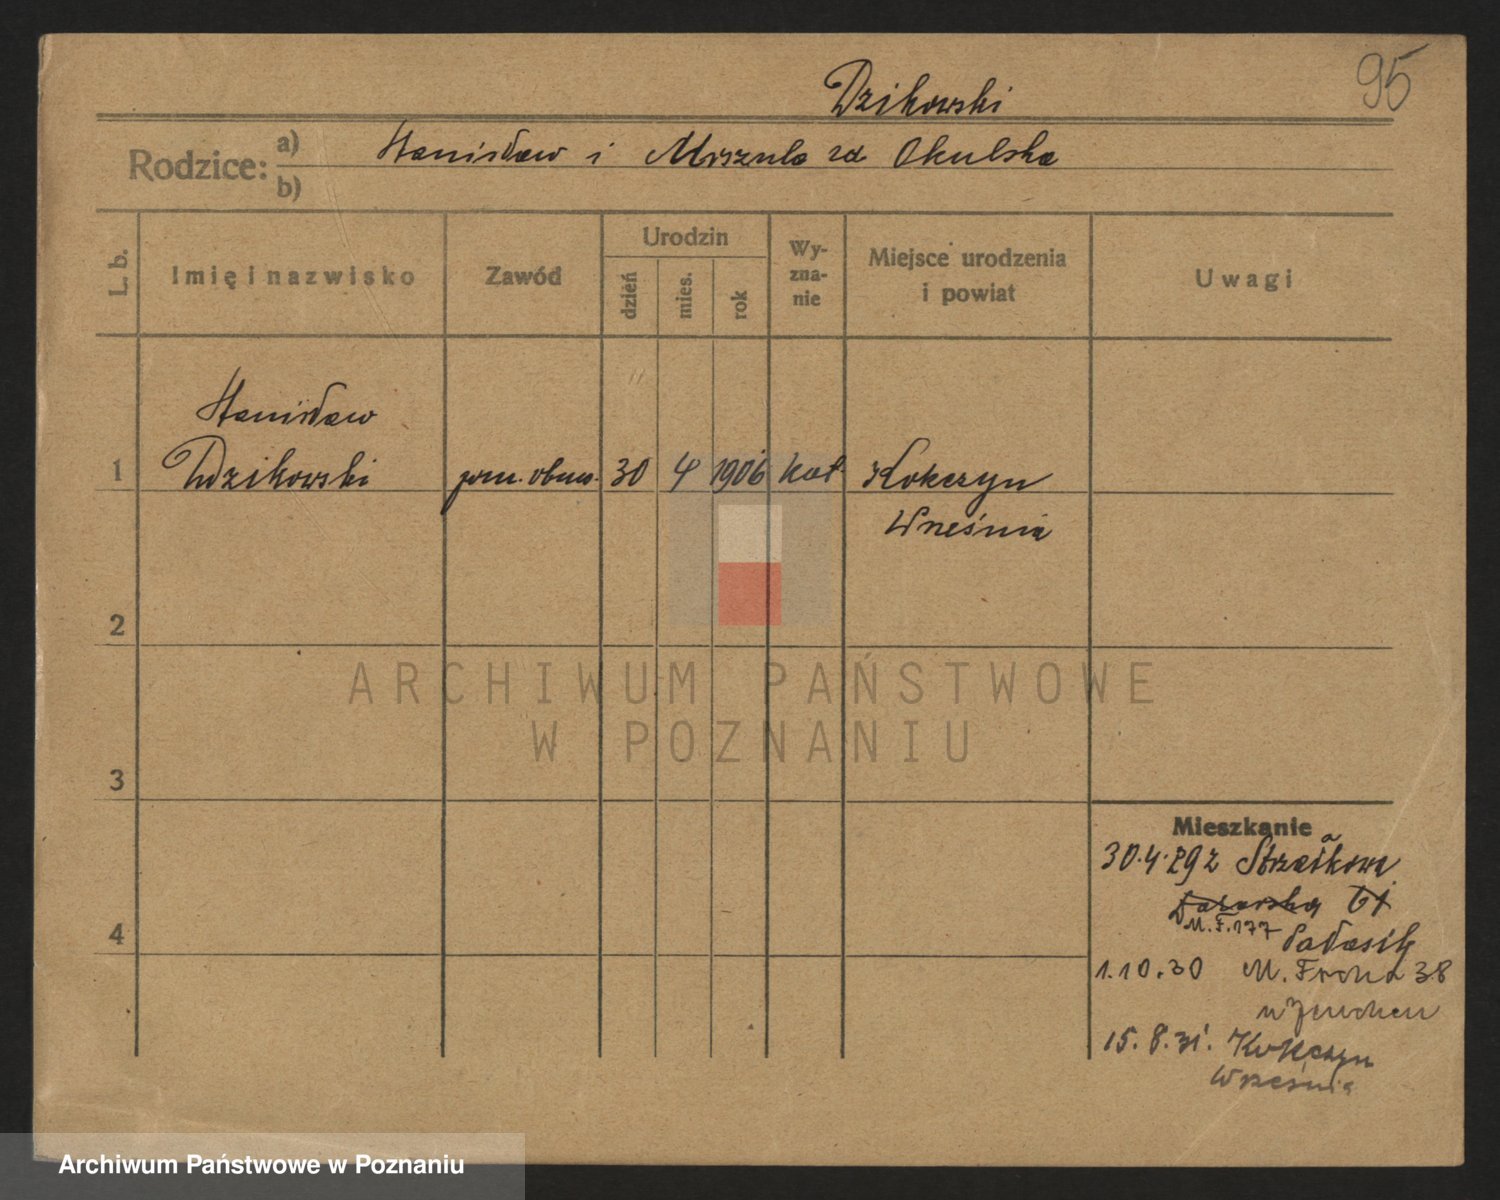 95
Dzikowski
Rodzice: a) Stanisław i Urszula zd. Okulska
b)
L. b.
Imię i nazwisko
Zawód
Urodzin
dzień
mies.
rok
Wy-
zna-
nie
Miejsce urodzenia
i powiat
Uwagi
Stanisław
1 Dzikowski pom. obuw. 30 4 1906 kat. Kokczyn
Września
2
3
4
Mieszkanie
30.4.29 z Strzałkowa
M.F. 177
1.10.30 M. Focha 38
15.8.31. Kokczyn
Września
ARCHIWUM PAŃSTWOWE
W POZNANIU
Archiwum Państwowe w Poznaniu